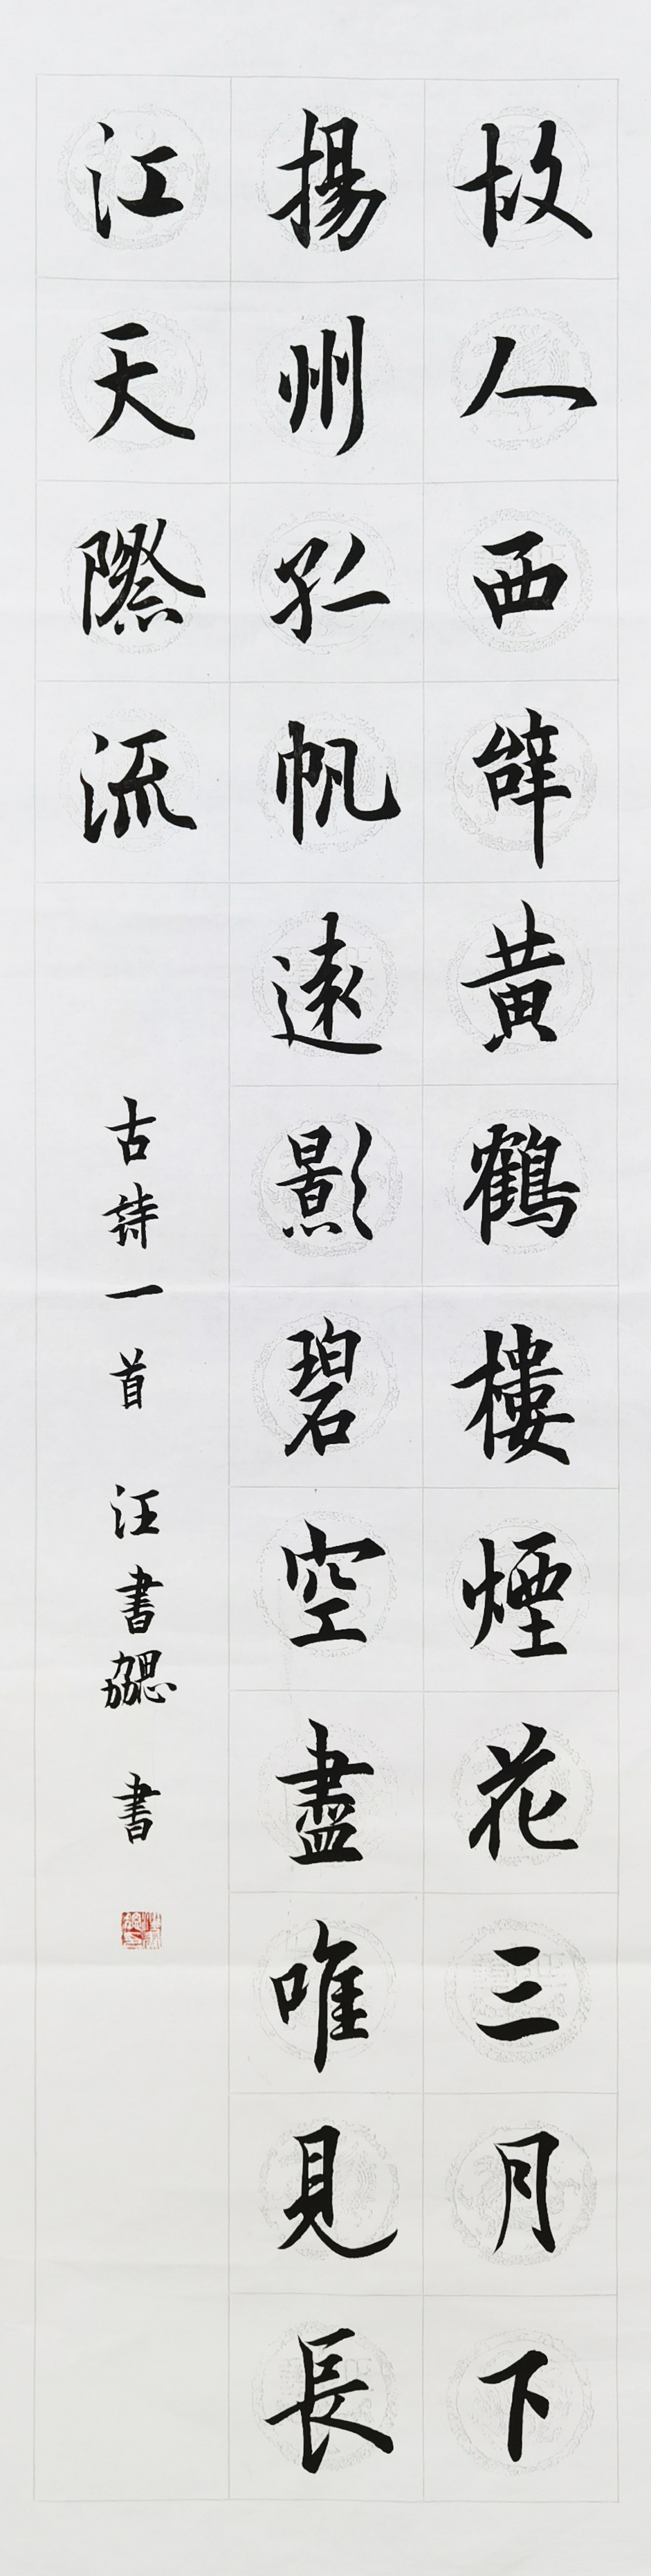 故人西辞黄鶴樓煙花三月下
揚州孤帆遠影碧空盡唯見長
江天際流
古詩一首 汪書勰 書